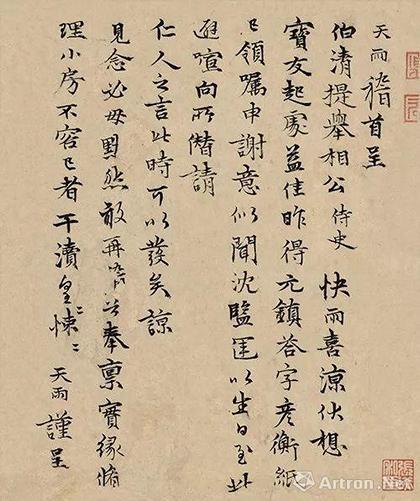 天雨稽首呈
伯清提舉相公侍史 快雨喜涼伏想
寶友起處益佳昨得元鎮答字彥衡紙
已領囑申謝意似聞沈鹽運以生日至此
避喧向所僭請
仁人之言此時可以發矣諒
見念必毋默然敢再 奉稟實緣脩
理小房不容已者干瀆皇〻悚〻 天雨謹呈
Artron.Net